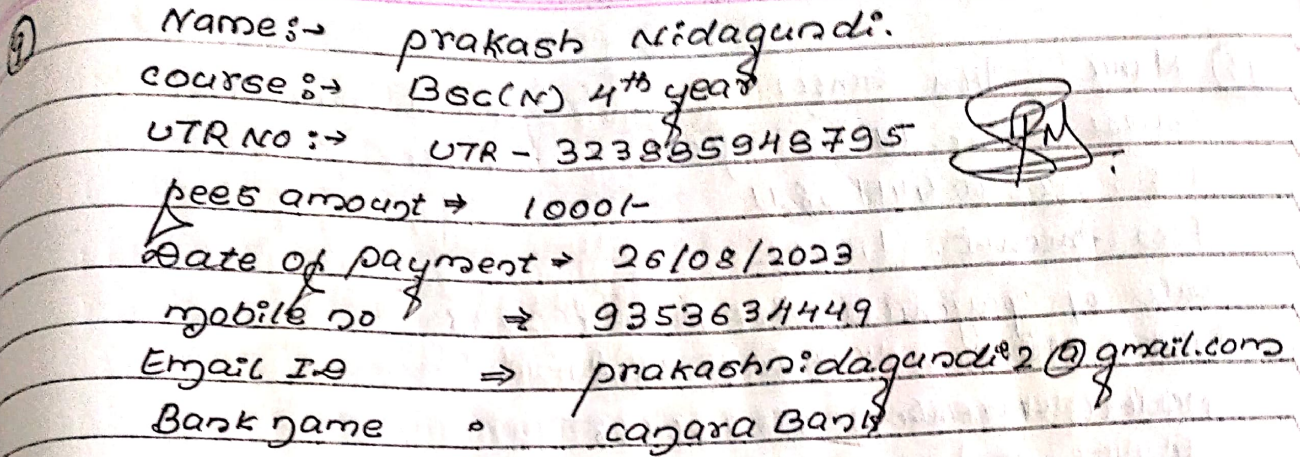 9
Name :→ prakash Nidagundi.
course :→ BSC(N) 4th year
UTR NO :→ UTR - 323895948795
fees amount ⇒ 1000/-
Date of payment ⇒ 26/08/2023
mobile no ⇒ 9353634449
Email ID ⇒ prakashnidagundi2@gmail.com
Bank name : canara Bank